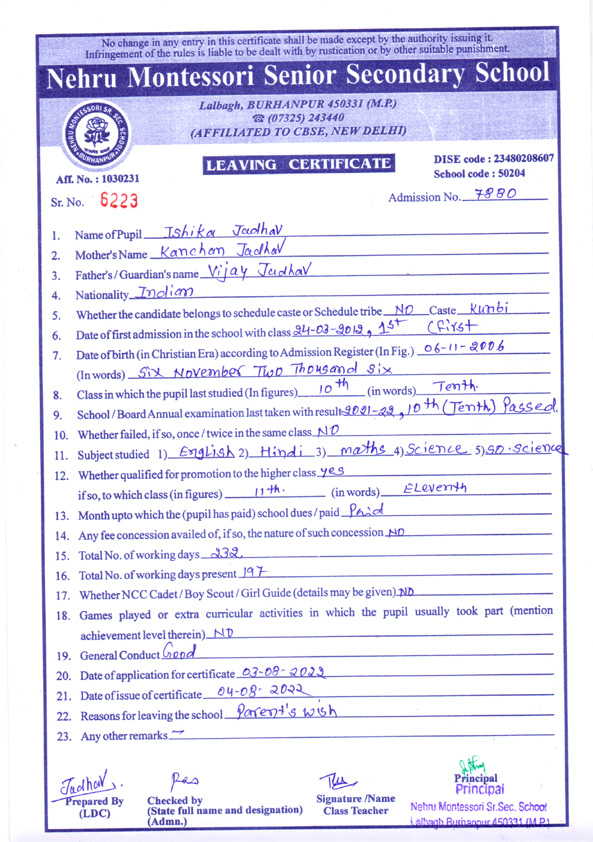 No change in any entry in this certificate shall be made except by the authority issuing it.
Infringement of the rules is liable to be dealt with by rustication or by other suitable punishment.
Nehru Montessori Senior Secondary School
Lalbagh, BURHANPUR 450331 (M.P.)
☎ (07325) 243440
(AFFILIATED TO CBSE, NEW DELHI)
NEHRU MONTESSORI SR. SEC. SCHOOL
BURHANPUR
LEAVING CERTIFICATE
DISE code : 23480208607
School code : 50204
Aff. No. : 1030231
Sr. No. 6223
Admission No. 7880
1. Name of Pupil Ishika Jadhav
2. Mother's Name Kanchan Jadhav
3. Father's / Guardian's name Vijay Jadhav
4. Nationality Indian
5. Whether the candidate belongs to schedule caste or Schedule tribe NO Caste Kunbi
6. Date of first admission in the school with class 24-03-2012, 1st (first
7. Date of birth (in Christian Era) according to Admission Register (In Fig.) 06-11-2006
(In words) Six November Two Thousand Six
8. Class in which the pupil last studied (In figures) 10th (in words) Tenth.
9. School / Board Annual examination last taken with result 2021-22, 10th (Tenth) Passed.
10. Whether failed, if so, once / twice in the same class NO
11. Subject studied 1) English 2) Hindi 3) maths 4) Science 5) SO. Science
12. Whether qualified for promotion to the higher class yes
if so, to which class (in figures) 11th. (in words) Eleventh
13. Month upto which the (pupil has paid) school dues / paid Paid
14. Any fee concession availed of, if so, the nature of such concession NO
15. Total No. of working days 232.
16. Total No. of working days present 197
17. Whether NCC Cadet / Boy Scout / Girl Guide (details may be given) NO
18. Games played or extra curricular activities in which the pupil usually took part (mention
achievement level therein) NO
19. General Conduct Good
20. Date of application for certificate 03-08-2022
21. Date of issue of certificate 04-08-2022
22. Reasons for leaving the school Parent's wish
23. Any other remarks —
Jadhav.
Prepared By
(LDC)
Checked by
(State full name and designation)
(Admn.)
Signature /Name
Class Teacher
Principal
Principal
Nehru Montessori Sr.Sec. School
Lalbagh Burhanpur 450331 (M.P.)